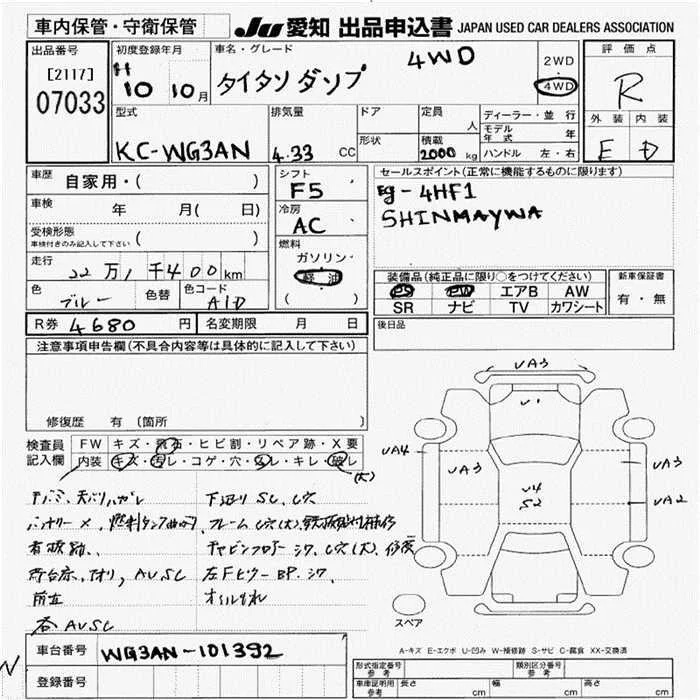 車内保管・守衛保管
JU 愛知 出品申込書 JAPAN USED CAR DEALERS ASSOCIATION
出品番号
[2117]
07033
初度登録年月
H
10 10月
車名・グレード
タイタンダンプ 4WD
2WD
4WD
評価点
R
外装 内装
E D
型式
KC-WG3AN
排気量
4.33 CC
ドア
形状
定員
人
積載
2000 kg
ディーラー・並行
モデル年式 年
ハンドル 左・右
車歴 自家用・( )
車検 年 月( 日)
受検形態
車検付きのみ記入して下さい ( )
走行
22万1千400km
色 ブルー 色替 色コード A1D
シフト
F5
冷房
AC
燃料
ガソリン
軽油
( )
セールスポイント(正常に機能するものに限ります)
Eg-4HF1
SHINMAYWA
装備品(純正品に限り○をつけてください)
PS PW エアB AW
SR ナビ TV カワシート
新車保証書
有・無
後日品
R券 4680 円 名変期限 月 日
注意事項申告欄(不具合内容等は具体的に記入して下さい)
修復歴 有 〔箇所 〕
検査員記入欄
FW キズ・飛石・ヒビ割・リペア跡・X要
内装 キズ・汚レ・コゲ・穴・スレ・キレ・破レ
(大)
下廻り SC、C穴
バッテリー X、燃料タンク曲り
フレーム C穴(大)
キャビンフロアー シワ、C穴(大)
AVSC
オイルもれ
AVSC
VA3
V1
VA4
VA3
V4
S2
VA3
VA2
スペア
A-キズ E-エクボ U-凹み W-補修跡 S-サビ C-腐食 XX-交換済
車台番号 WG3AN-101392
登録番号
形式指定番号 参考
類別区分番号 参考
車庫証明用 参考 長さ cm 幅 cm 高さ cm